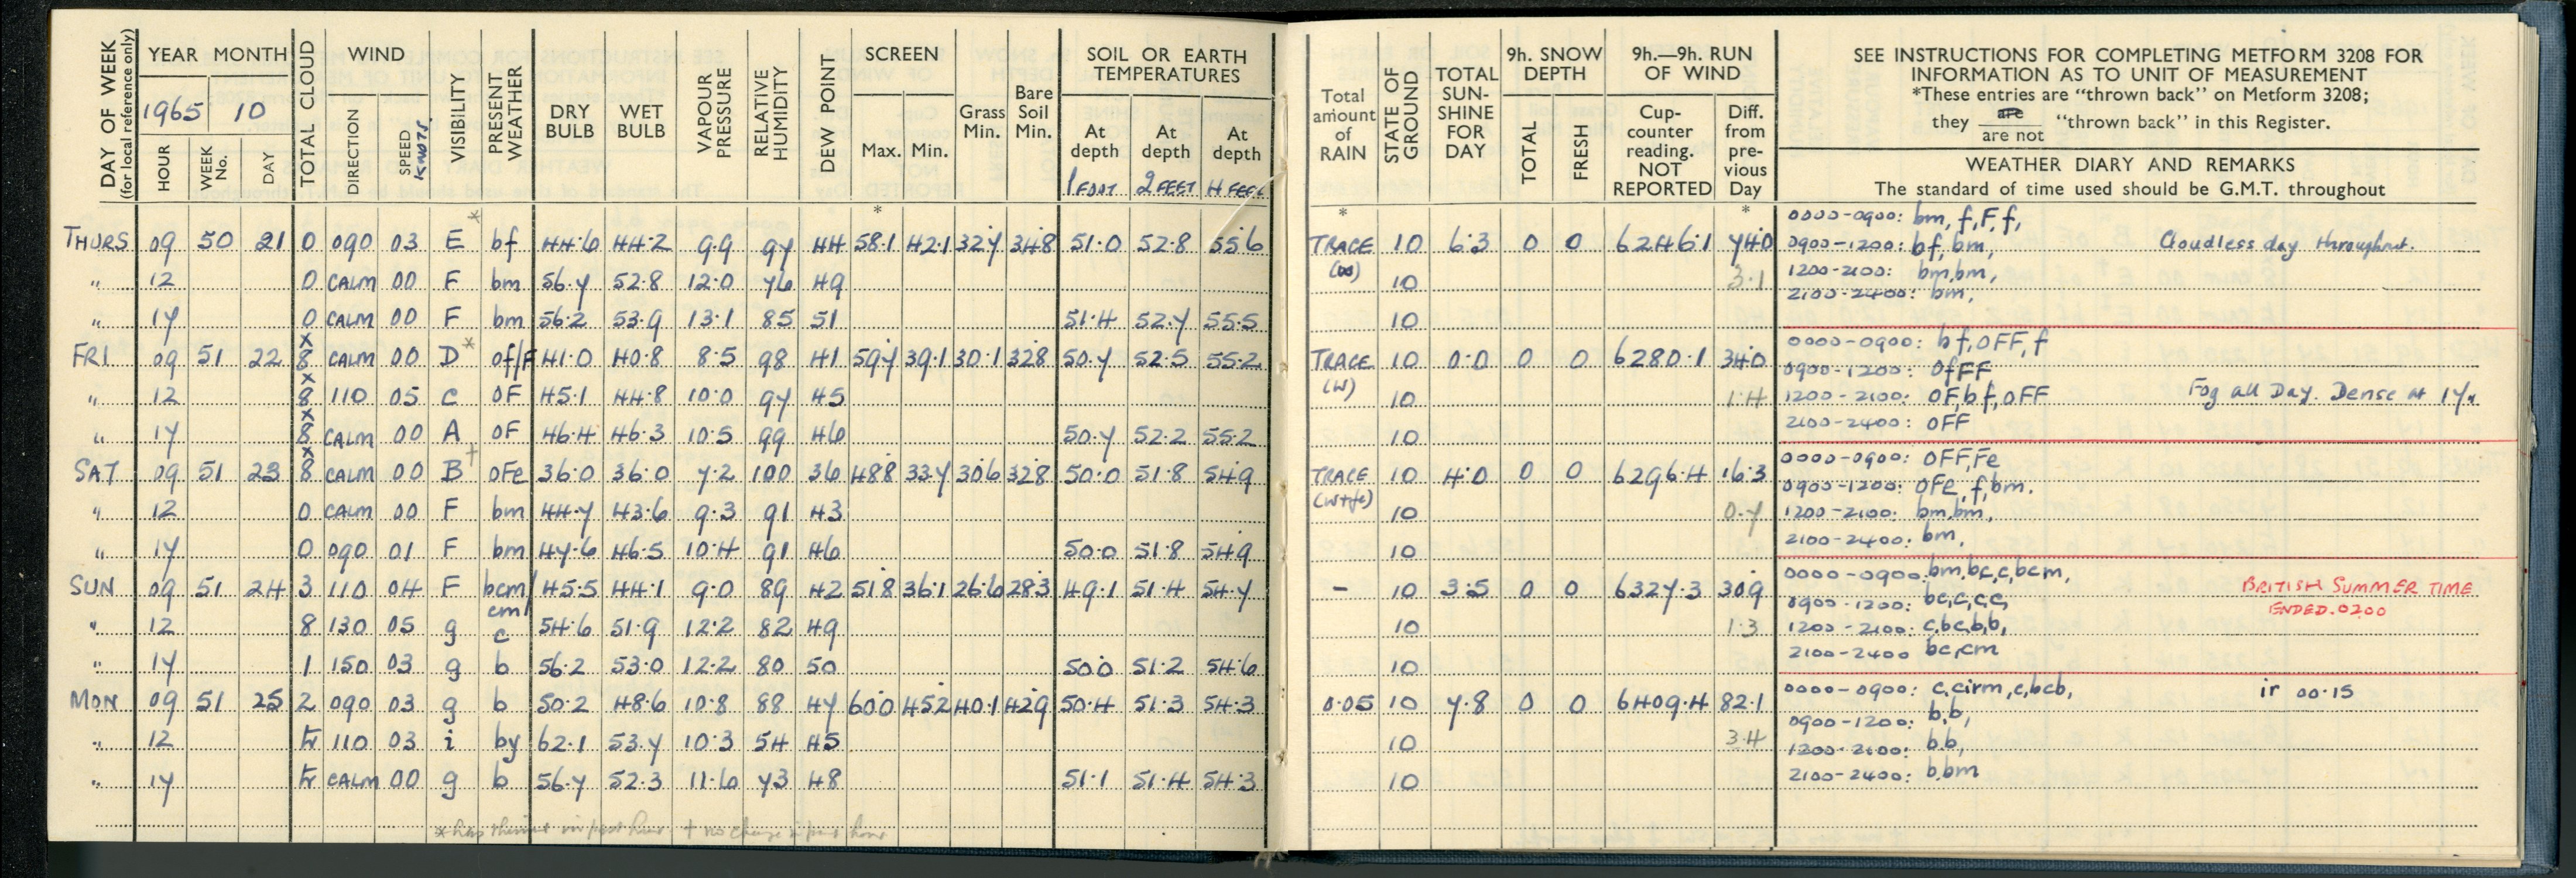 DAY OF WEEK (for local reference only) YEAR MONTH TOTAL CLOUD WIND VISIBILITY PRESENT WEATHER DRY BULB WET BULB VAPOUR PRESSURE RELATIVE HUMIDITY DEW POINT SCREEN Grass Min. Bare Soil Min. SOIL OR EARTH TEMPERATURES
1965 10
HOUR WEEK No. DAY DIRECTION SPEED KNOTS. Max. Min. At depth 1 FOOT At depth 2 FEET At depth 4 FEET
*
THURS 09 50 21 0 090 03 E* bf 44.6 44.2 9.9 97 44 58.1 42.1 32.7 34.8 51.0 52.8 55.6
" 12 0 CALM 00 F bm 56.7 52.8 12.0 76 49
" 17 0 CALM 00 F bm 56.2 53.9 13.1 85 51 51.4 52.7 55.5
FRI 09 51 22 x8 CALM 00 D* of/F 41.0 40.8 8.5 98 41 59.7 39.1 30.1 32.8 50.7 52.5 55.2
" 12 x8 110 05 C OF 45.1 44.8 10.0 97 45
" 17 x8 CALM 00 A OF 46.4 46.3 10.5 99 46 50.7 52.2 55.2
SAT 09 51 23 x8 CALM 00 B† OFe 36.0 36.0 7.2 100 36 48.8 33.7 30.6 32.8 50.0 51.8 54.9
" 12 0 CALM 00 F bm 44.7 43.6 9.3 91 43
" 17 0 090 01 F bm 47.6 46.5 10.4 91 46 50.0 51.8 54.9
SUN 09 51 24 3 110 04 F bcm/ 45.5 44.1 9.0 89 42 51.8 36.1 26.6 28.3 49.1 51.4 54.7
" 12 8 130 05 g cm/c 54.6 51.9 12.2 82 49
" 17 1 150 03 g b 56.2 53.0 12.2 80 50 50.0 51.2 54.6
MON 09 51 25 2 090 03 g b 50.2 48.6 10.8 88 47 60.0 45.2 40.1 42.9 50.4 51.3 54.3
" 12 tr 110 03 i by 62.1 53.7 10.3 54 45
" 17 tr CALM 00 g b 56.7 52.3 11.6 73 48 51.1 51.4 54.3
* has in past hour † no change in past hour
Total amount of RAIN STATE OF GROUND TOTAL SUN-SHINE FOR DAY 9h. SNOW DEPTH TOTAL FRESH 9h.—9h. RUN OF WIND Cup-counter reading. NOT REPORTED Diff. from pre-vious Day
SEE INSTRUCTIONS FOR COMPLETING METFORM 3208 FOR
INFORMATION AS TO UNIT OF MEASUREMENT
*These entries are "thrown back" on Metform 3208;
they are / are not "thrown back" in this Register.
WEATHER DIARY AND REMARKS
The standard of time used should be G.M.T. throughout
* *
0000-0900: bm, f,F f,
TRACE 10 6.3 0 0 6246.1 74.0 0900-1200: bf, bm, Cloudless day throughout.
(w) 10 3.1 1200-2100: bm,bm,
2100-2400: bm,
10
0000-0900: bf,OFF,f
TRACE 10 0.0 0 0 6280.1 34.0 0900-1200: OfFF
(w) 10 1.4 1200-2100: OF,bf,OFF Fog all Day. Dense at 17x
10 2100-2400: OFF
0000-0900: OFF,Fe
TRACE 10 4.0 0 0 6296.4 16.3 0900-1200: OFe, f,bm.
(w+fe) 10 0.7 1200-2100: bm,bm,
10 2100-2400: bm,
0000-0900: bm,bc,c,bcm,
- 10 3.5 0 0 6327.3 30.9 0900-1200: bc,c,c,c, BRITISH SUMMER TIME
ENDED. 0200
10 1.3 1200-2100: c,bc,b,b,
10 2100-2400 bc,cm
0000-0900: c,cirm,c,bcb, ir 00.15
0.05 10 7.8 0 0 6409.4 82.1 0900-1200: b.b,
10 3.4 1200-2100: b.b,
10 2100-2400: b,bm